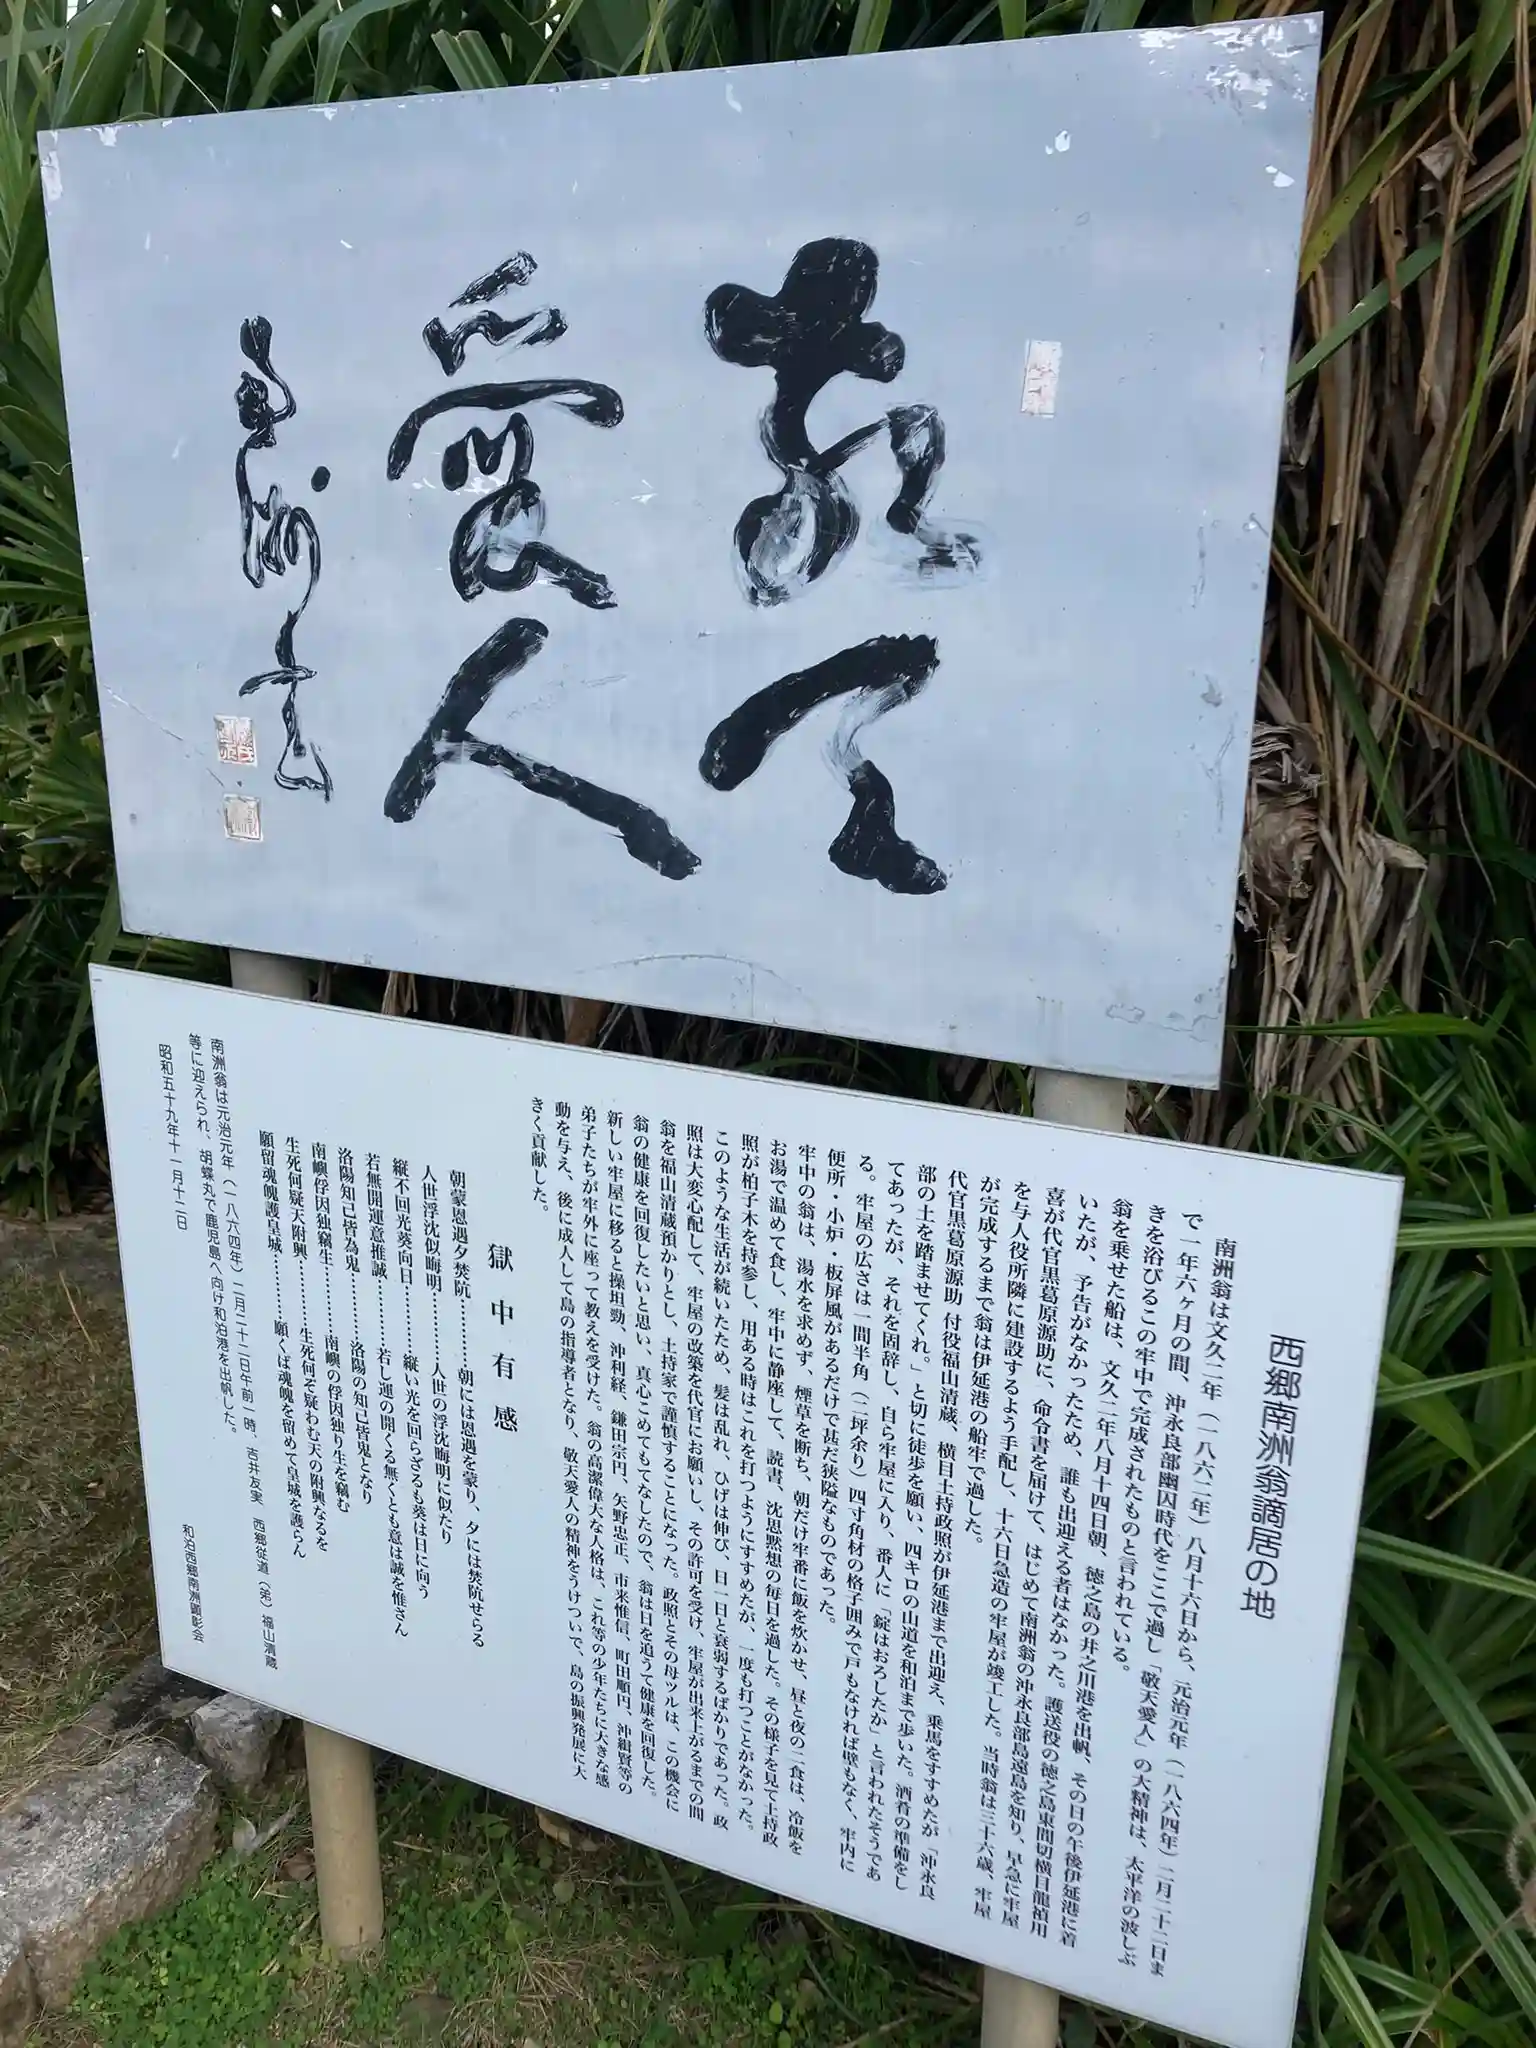 敬天
愛人
南洲書
西郷南洲翁謫居の地
南洲翁は文久二年（一八六二年）八月十六日から、元治元年（一八六四年）二月二十二日ま
で一年六ヶ月の間、沖永良部幽囚時代をここで過し「敬天愛人」の大精神は、太平洋の波しぶ
きを浴びるこの牢中で完成されたものと言われている。
翁を乗せた船は、文久二年八月十四日朝、徳之島の井之川港を出帆、その日の午後伊延港に着
いたが、予告がなかったため、誰も出迎える者はなかった。護送役の徳之島東間切横目龍禎用
喜が代官黒葛原源助に、命令書を届けて、はじめて南洲翁の沖永良部島遠島を知り、早急に牢屋
を与人役所隣に建設するよう手配し、十六日急造の牢屋が竣工した。当時翁は三十六歳、牢屋
が完成するまで翁は伊延港の船牢で過した。
代官黒葛原源助 付役福山清蔵、横目土持政照が伊延港まで出迎え、乗馬をすすめたが「沖永良
部の土を踏ませてくれ。」と切に徒歩を願い、四キロの山道を和泊まで歩いた。酒肴の準備をし
てあったが、それを固辞し、自ら牢屋に入り、番人に「錠はおろしたか」と言われたそうであ
る。牢屋の広さは一間半角（二坪余り）四寸角材の格子囲みで戸もなければ壁もなく、牢内に
便所・小炉・板屏風があるだけで甚だ狭隘なものであった。
牢中の翁は、湯水を求めず、煙草を断ち、朝だけ牢番に飯を炊かせ、昼と夜の二食は、冷飯を
お湯で温めて食し、牢中に静座して、読書、沈思黙想の毎日を過した。その様子を見て土持政
照が柏子木を持参し、用ある時はこれを打つようにすすめたが、一度も打つことがなかった。
このような生活が続いたため、髪は乱れ、ひげは伸び、日一日と衰弱するばかりであった。政
照は大変心配して、牢屋の改築を代官にお願いし、その許可を受け、牢屋が出来上がるまでの間
翁を福山清蔵預かりとし、土持家で謹慎することになった。政照とその母ツルは、この機会に
翁の健康を回復したいと思い、真心こめてもてなしたので、翁は日を追うて健康を回復した。
新しい牢屋に移ると操坦勁、沖利経、鎌田宗円、矢野忠正、市来惟信、町田順円、沖緝賢等の
弟子たちが牢外に座って教えを受けた。翁の高潔偉大な人格は、これ等の少年たちに大きな感
動を与え、後に成人して島の指導者となり、敬天愛人の精神をうけついで、島の振興発展に大
きく貢献した。
獄中有感
朝蒙恩遇夕焚阬…………朝には恩遇を蒙り、夕には焚阬せらる
人世浮沈似晦明…………人世の浮沈晦明に似たり
縦不回光葵向日…………縦い光を回らざるも葵は日に向う
若無開運意推誠…………若し運の開くる無くとも意は誠を惟さん
洛陽知己皆為鬼…………洛陽の知己皆鬼となり
南嶼俘囚独竊生…………南嶼の俘囚独り生を竊む
生死何疑天附興…………生死何ぞ疑わむ天の附興なるを
願留魂魄護皇城…………願くば魂魄を留めて皇城を護らん
南洲翁は元治元年（一八六四年）二月二十二日午前一時、吉井友実 西郷従道（弟）福山清蔵
等に迎えられ、胡蝶丸で鹿児島へ向け和泊港を出帆した。
昭和五十九年十一月十二日
和泊西郷南洲顕彰会